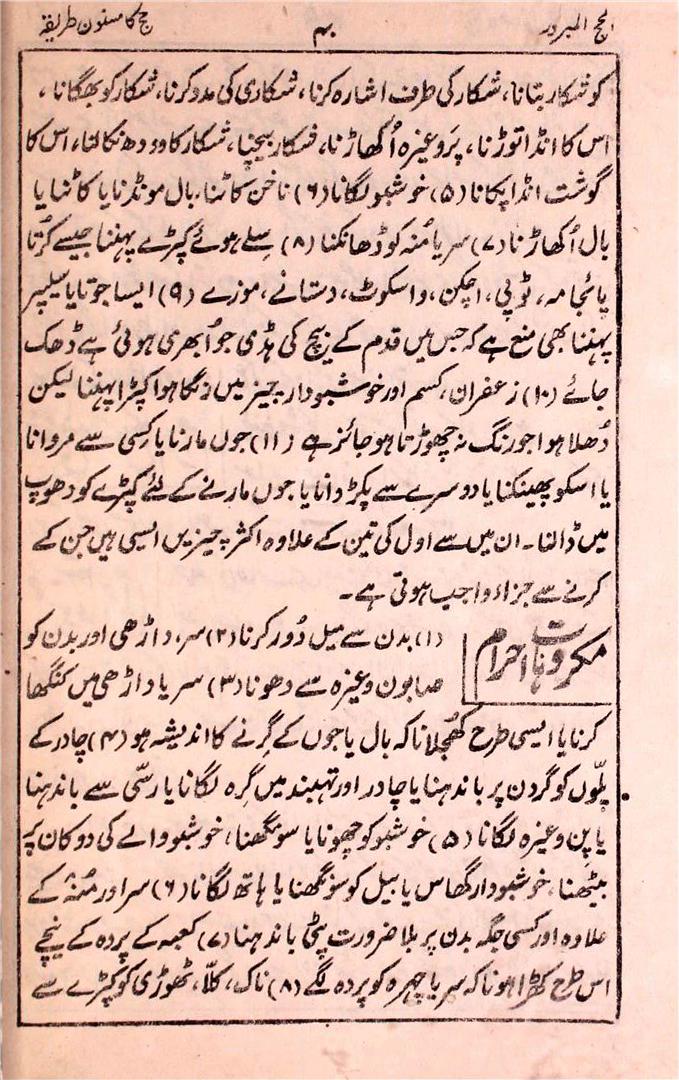 الحج المبرور ۴۰ حج کا مسنون طریقہ
کو شکار بتانا، شکار کی طرف اشارہ کرنا، شکاری کی مدد کرنا، شکار کو بھگانا،
اس کا انڈا توڑنا، پَر وغیرہ اُکھاڑنا، شکار بیچنا، شکار کا دودھ نکالنا، اس کا
گوشت انڈا پکانا (۵) خوشبو لگانا (۶) ناخن کاٹنا، بال مونڈنا یا کاٹنا یا
بال اُکھاڑنا (۷) سر یا مُنہ کو ڈھانکنا (۸) سِلے ہوئے کپڑے پہننا جیسے کُرتا
پائجامہ، ٹوپی، اچکن، واسکوٹ، دستانے، موزے (۹) ایسا جوتا یا سلیپر
پہننا بھی منع ہے کہ جس میں قدم کے بیچ کی ہڈی جو اُبھری ہوئی ہے ڈھک
جائے (۱۰) زعفران، کسم اور خوشبودار چیز میں رنگا ہوا کپڑا پہننا لیکن
دُھلا ہوا جو رنگ نہ چھوڑتا ہو جائز ہے (۱۱) جوں مارنا یا کسی سے مروانا
یا اسکو پھینکنا یا دوسرے سے پکڑوانا یا جوں مارنے کے لئے کپڑے کو دھوپ
میں ڈالنا۔ ان میں سے اول کی تین کے علاوہ اکثر چیزیں ایسی ہیں جن کے
کرنے سے جزاء واجب ہوتی ہے۔
مکروہات احرام (۱) بدن سے میل دُور کرنا (۲) سر، داڑھی اور بدن کو
صابون وغیرہ سے دھونا (۳) سر یا داڑھی میں کنگھا
کرنا یا ایسی طرح کُھجلانا کہ بال یا جوں کے گرنے کا اندیشہ ہو (۴) چادر کے
پلّوں کو گردن پر باندھنا یا چادر اور تہبند میں گرہ لگانا یا رسّی سے باندھنا
یا پن وغیرہ لگانا (۵) خوشبو کو چھونا یا سونگھنا، خوشبو والے کی دوکان پر
بیٹھنا، خوشبودار گھاس یا بیل کو سونگھنا یا ہاتھ لگانا (۶) سر اور مُنہ کے
علاوہ اور کسی جگہ بدن پر بلا ضرورت پٹی باندھنا (۷) کعبہ کے پردہ کے نیچے
اس طرح کھڑا ہونا کہ سر یا چہرہ کو پردہ لگے (۸) ناک، کلّا، ٹھوڑی کو کپڑے سے